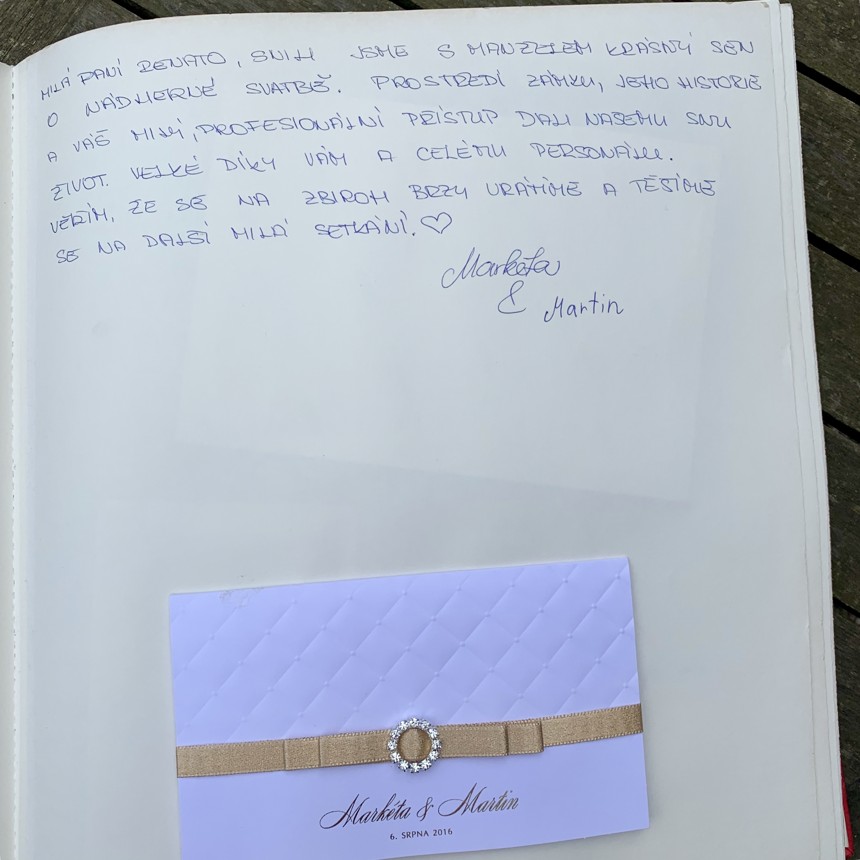 MILÁ PANÍ RENATO, SNILI JSME S MANŽELEM KRÁSNÝ SEN
O NÁDHERNÉ SVATBĚ. PROSTŘEDÍ ZÁMKU, JEHO HISTORIE
A VÁŠ MILÝ, PROFESIONÁLNÍ PŘÍSTUP DALI NAŠEMU SNU
ŽIVOT. VELKÉ DÍKY VÁM A CELÉMU PERSONÁLU.
VĚŘÍM, ŽE SE NA ZBIROH BRZY VRÁTÍME A TĚŠÍME
SE NA DALŠÍ MILÁ SETKÁNÍ. ♡
Markéta
& Martin
Markéta & Martin
6. SRPNA 2016